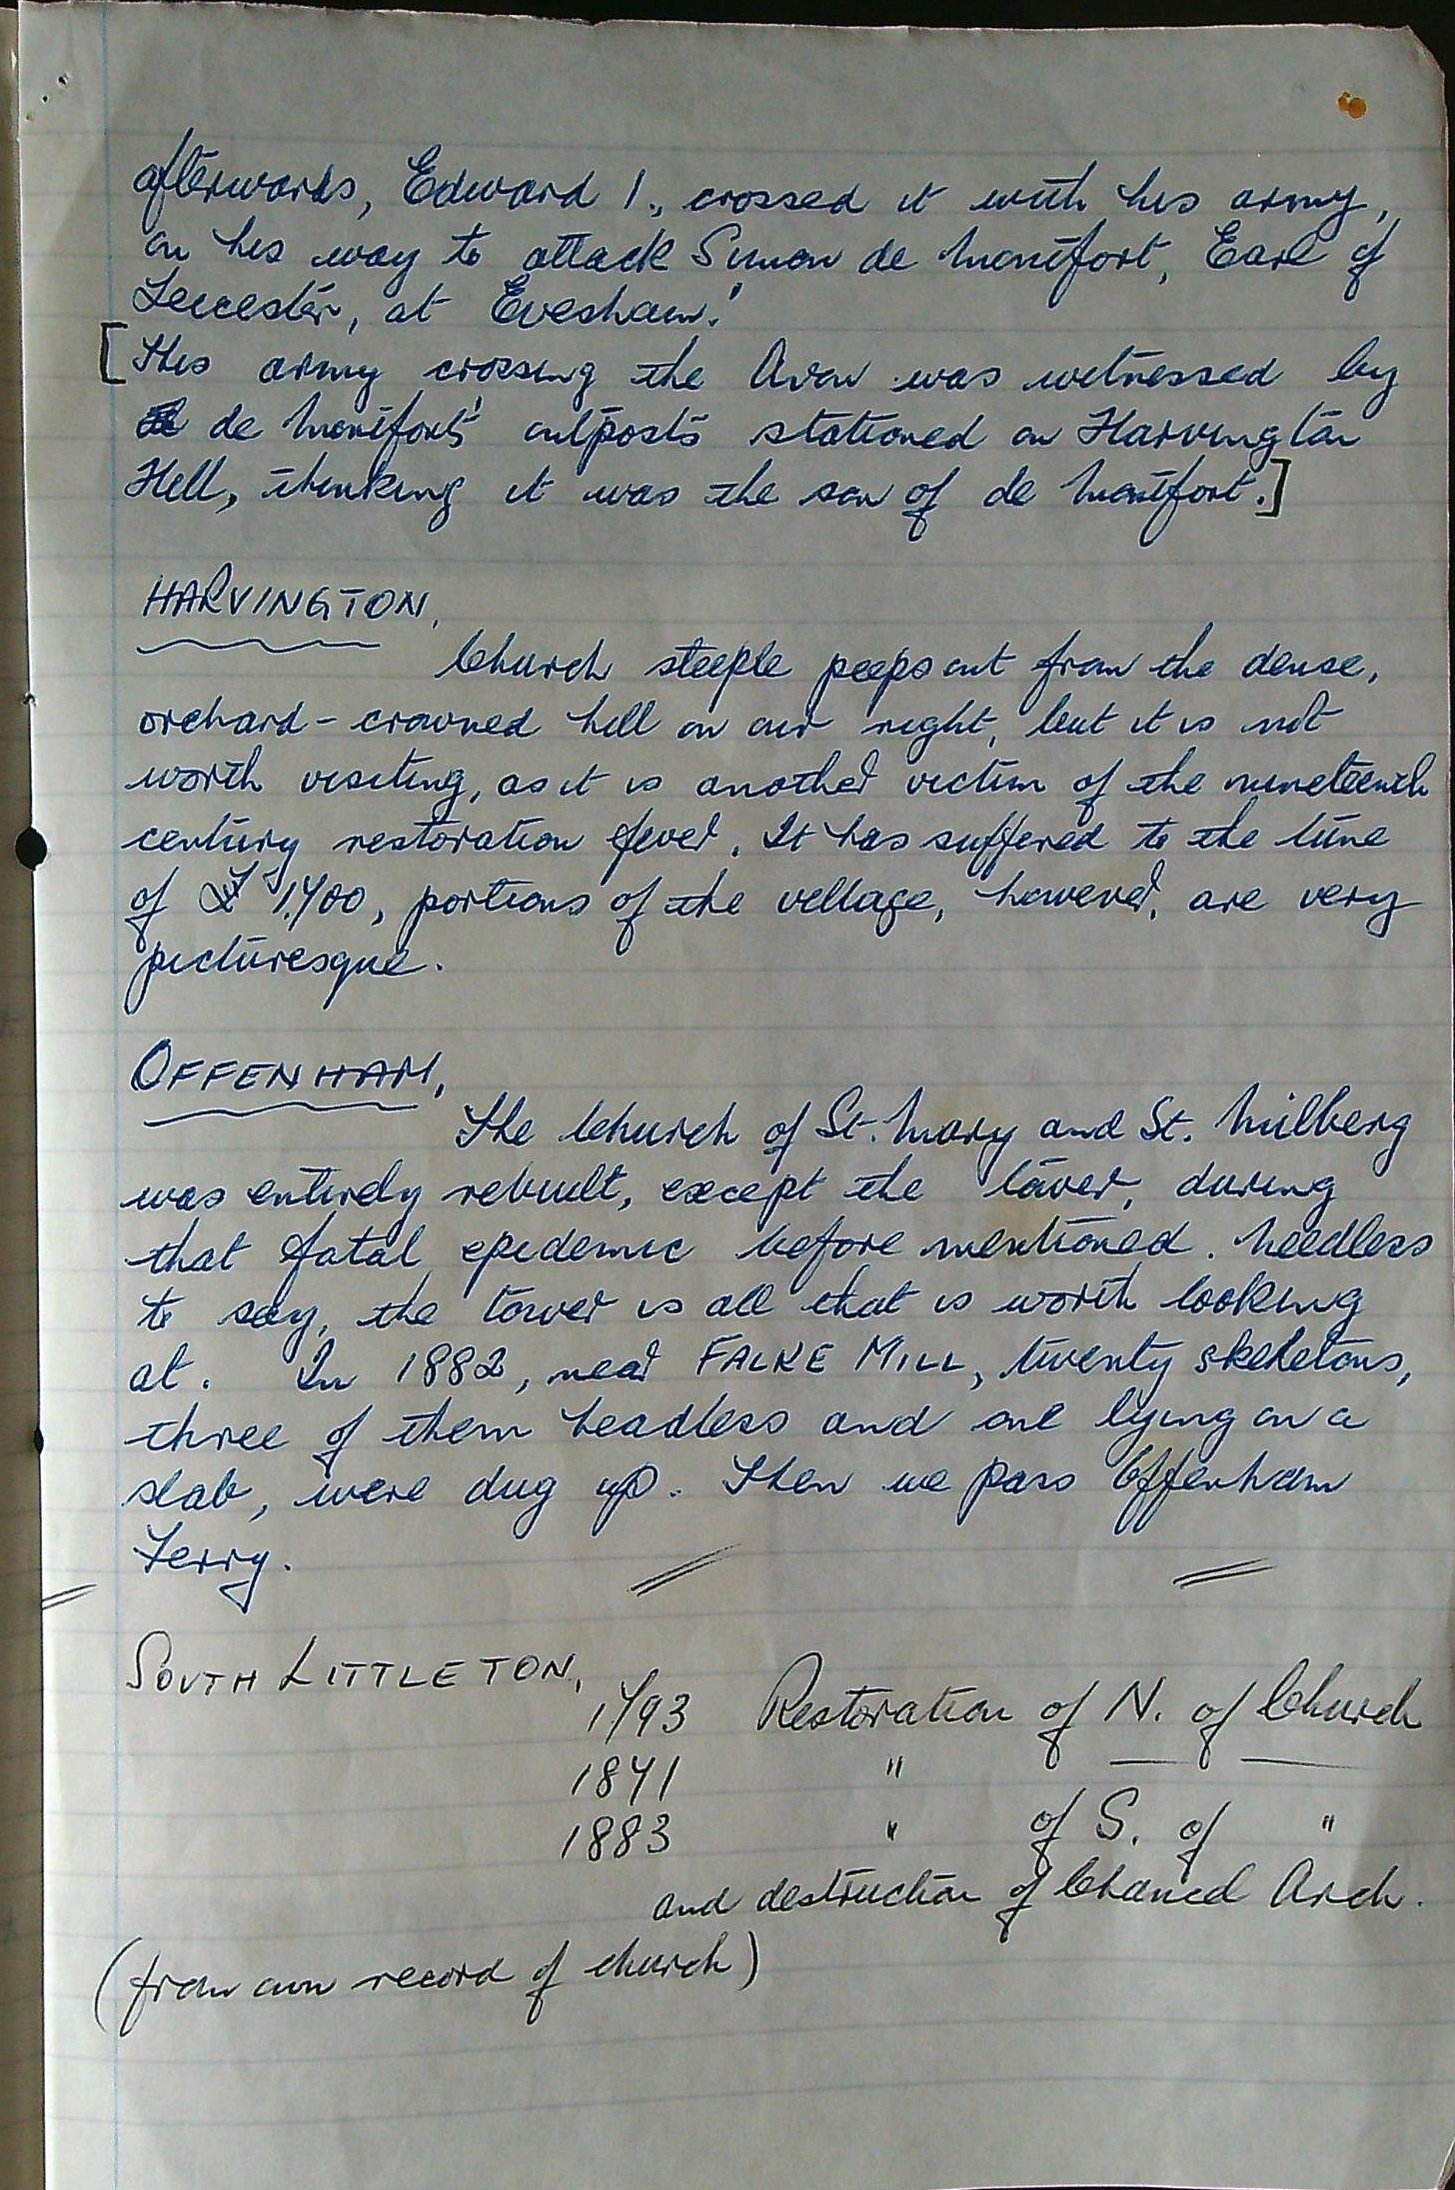 afterwards, Edward I., crossed it with his army,
on his way to attack Simon de Montfort, Earl of
Leicester, at Evesham!
[This army crossing the Avon was witnessed by
de Montfort's outposts stationed on Harvington
Hill, thinking it was the son of de Montfort.]
HARVINGTON,
Church steeple peeps out from the dense,
orchard-crowned hill on our right, but it is not
worth visiting, as it is another victim of the nineteenth
century restoration fever. It has suffered to the tune
of £1,700, portions of the village, however, are very
picturesque.
OFFENHAM,
The Church of St. Mary and St. Milberg
was entirely rebuilt, except the tower, during
that fatal epidemic before mentioned. Needless
to say, the tower is all that is worth looking
at. In 1882, near FALKE MILL, twenty skeletons,
three of them headless and one lying on a
slab, were dug up. Then we pass Offenham
Ferry.
SOUTH LITTLETON,
1793 Restoration of N. of Church
1841 " — —
1883 " of S. of "
and destruction of Chancel Arch.
(from own record of church)